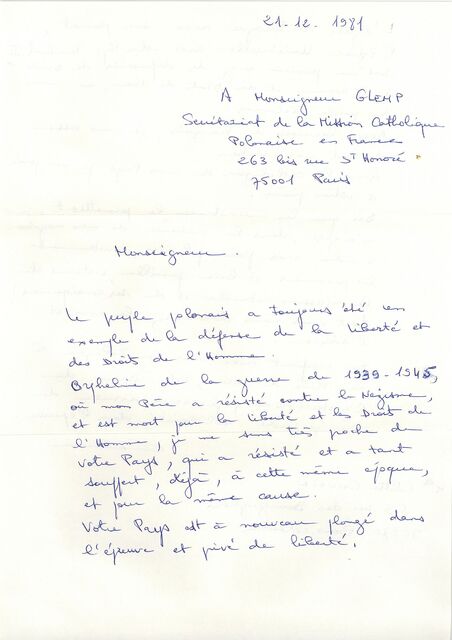 21-12-1981
A Monseigneur GLEMP
Secrétariat de la Mission Catholique
Polonaise en France
263 bis rue St Honoré
75001 Paris
Monseigneur.
Le peuple polonais a toujours été un
exemple de la défense de la liberté et
des Droits de l'Homme.
Orpheline de la guerre de 1939-1945,
où mon Père a résisté contre le Nazisme,
et est mort pour la liberté et les Droits de
l'Homme, je me sens très proche de
Votre Pays, qui a résisté et a tant
souffert, déjà, à cette même époque,
et pour la même cause.
Votre Pays est à nouveau plongé dans
l'épreuve et privé de liberté.